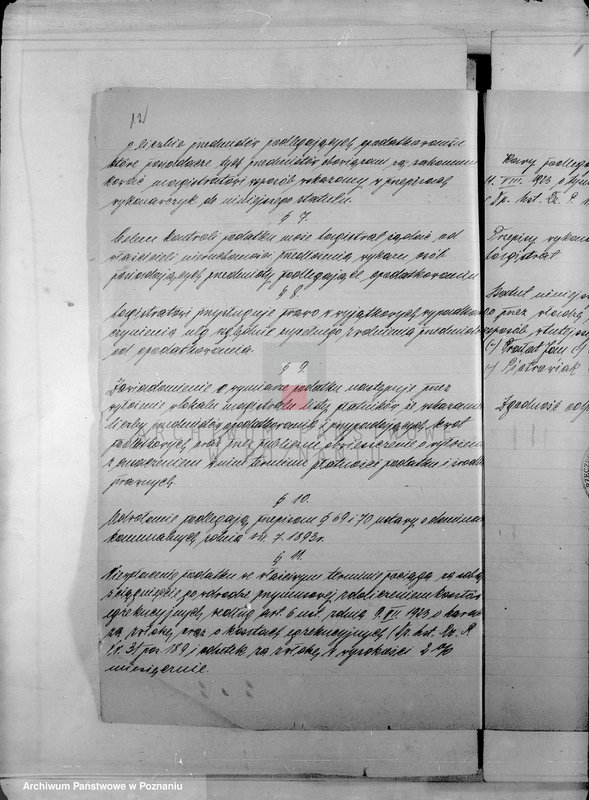 12
o liczbie przedmiotów podlegających opodatkowaniu
które posiadacze tych przedmiotów obowiązani są zakomuni
kować magistratowi w sposób wskazany w przepisach
wykonawczych do niniejszego statutu.
§ 7.
Celem kontroli podatku może Magistrat żądać od
właścicieli nieruchomości przedłożenia wykazu osób
posiadających przedmioty podlegające opodatkowaniu
§ 8.
Magistratowi przysługuje prawo w wyjątkowych wypadkach
czynienia ulg względnie zupełnego zwolnienia przedmiotu
od opodatkowania.
§ 9.
Zawiadomienie o wymiarze podatku następuje przez
wyłożenie w lokalu magistratu listy płatników ze wskazaniem
liczby przedmiotów opodatkowania i przypadających kwot
podatkowych oraz przez publiczne obwieszczenie o wyłożeniu
z oznaczeniem w nim terminu płatności podatku i środków
prawnych.
§ 10.
Odwołanie podlegają przepisom § 69 i 70 ustawy o daninach
komunalnych z dnia 14. 7. 1893 r.
§ 11.
Niezapłacenie podatku we właściwym terminie pociąga za sobą
ściągnięcie go w drodze przymusowej z doliczeniem kosztów
egzekucyjnych, według art. 6 ust. z dnia 9. VII. 1923 o karach
za zwłokę oraz o kosztach egzekucyjnych (Dz. Ust. Rz. P.
Nr. 31 poz. 189) i odsetek za zwłokę w wysokości 2%
miesięcznie.
Kary podlega
VIII. 1923 o
Dz. Ust. Rz. P.
Przepisy wykona
Magistrat.
Statut niniejs
przez władzę
sposób
(-)
(-) Pietrowiak
Zgodność
Archiwum Państwowe w Poznaniu